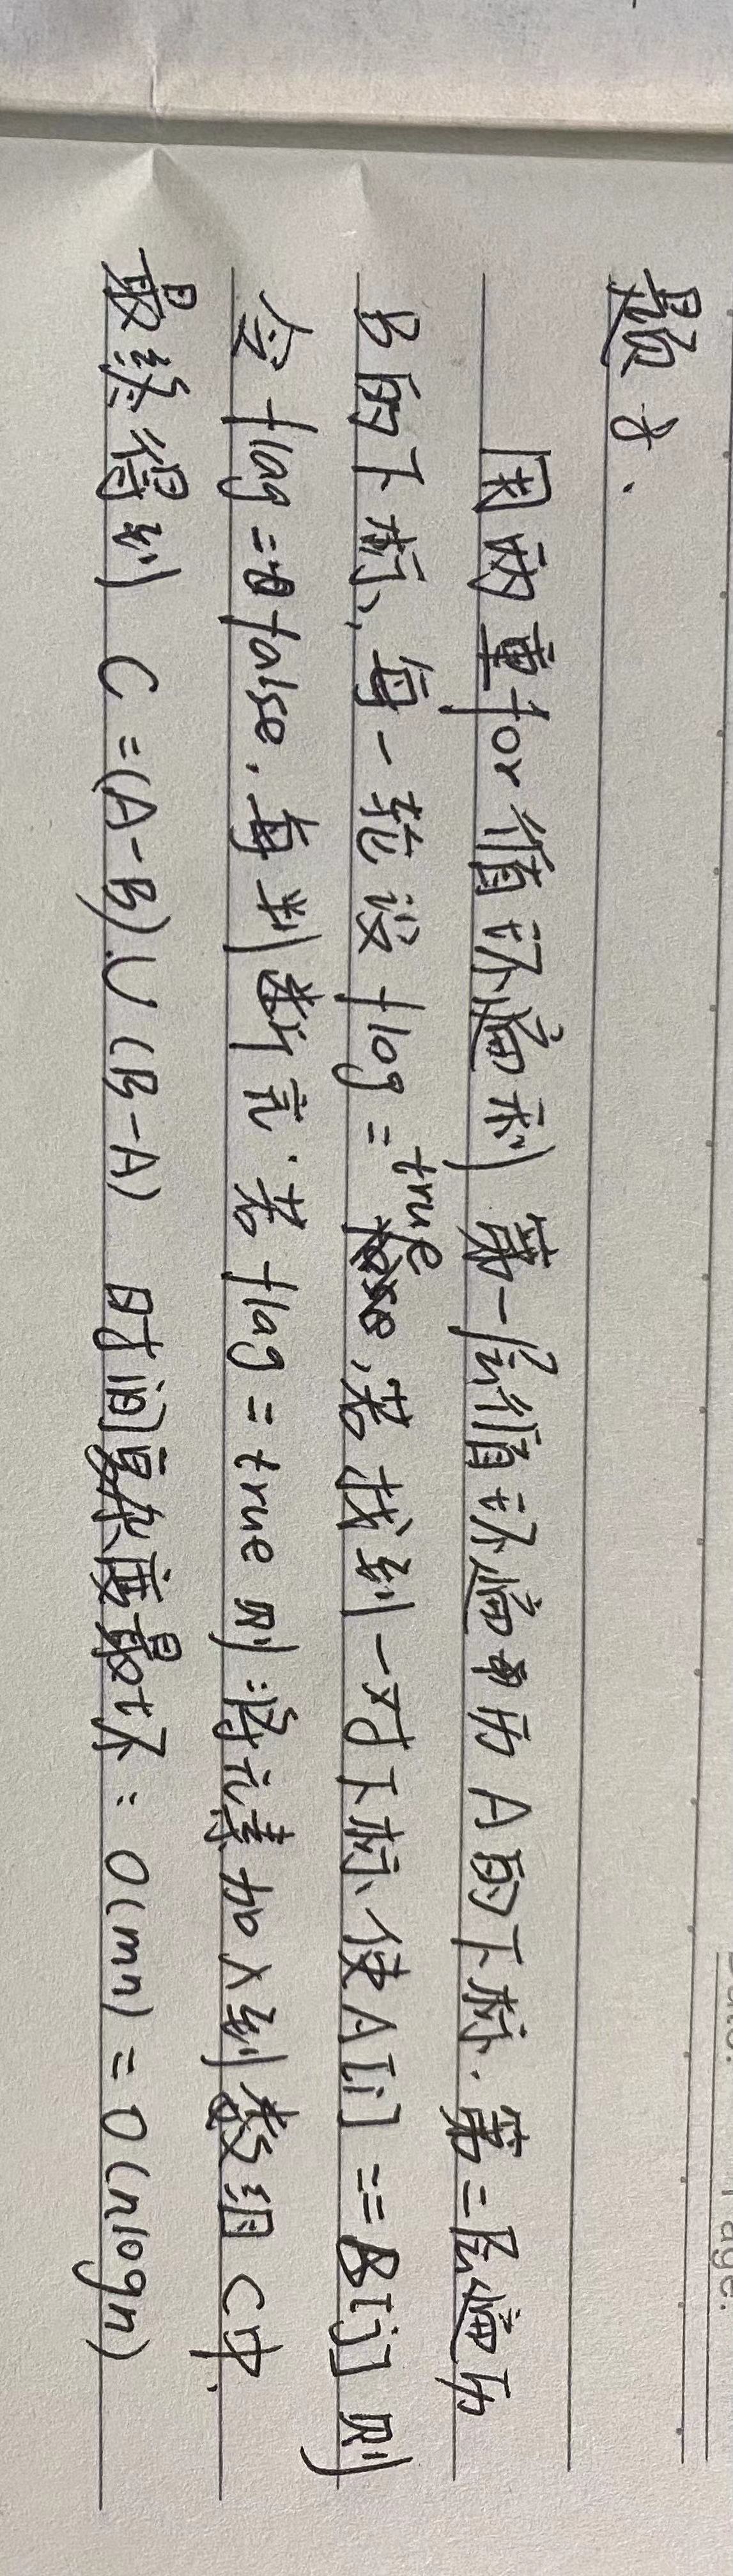 题8.
用两重for循环遍利 第一层循环遍历A的下标.第二层遍历
B的下标,每一轮设flag = true,若找到一对下标使A[i] == B[j] 则
令flag = false.每判断完.若flag = true 则将元素加入到数组C中.
最终得到 C =(A-B)∪(B-A) 时间复杂度最坏:O(mn) = O(nlogn)